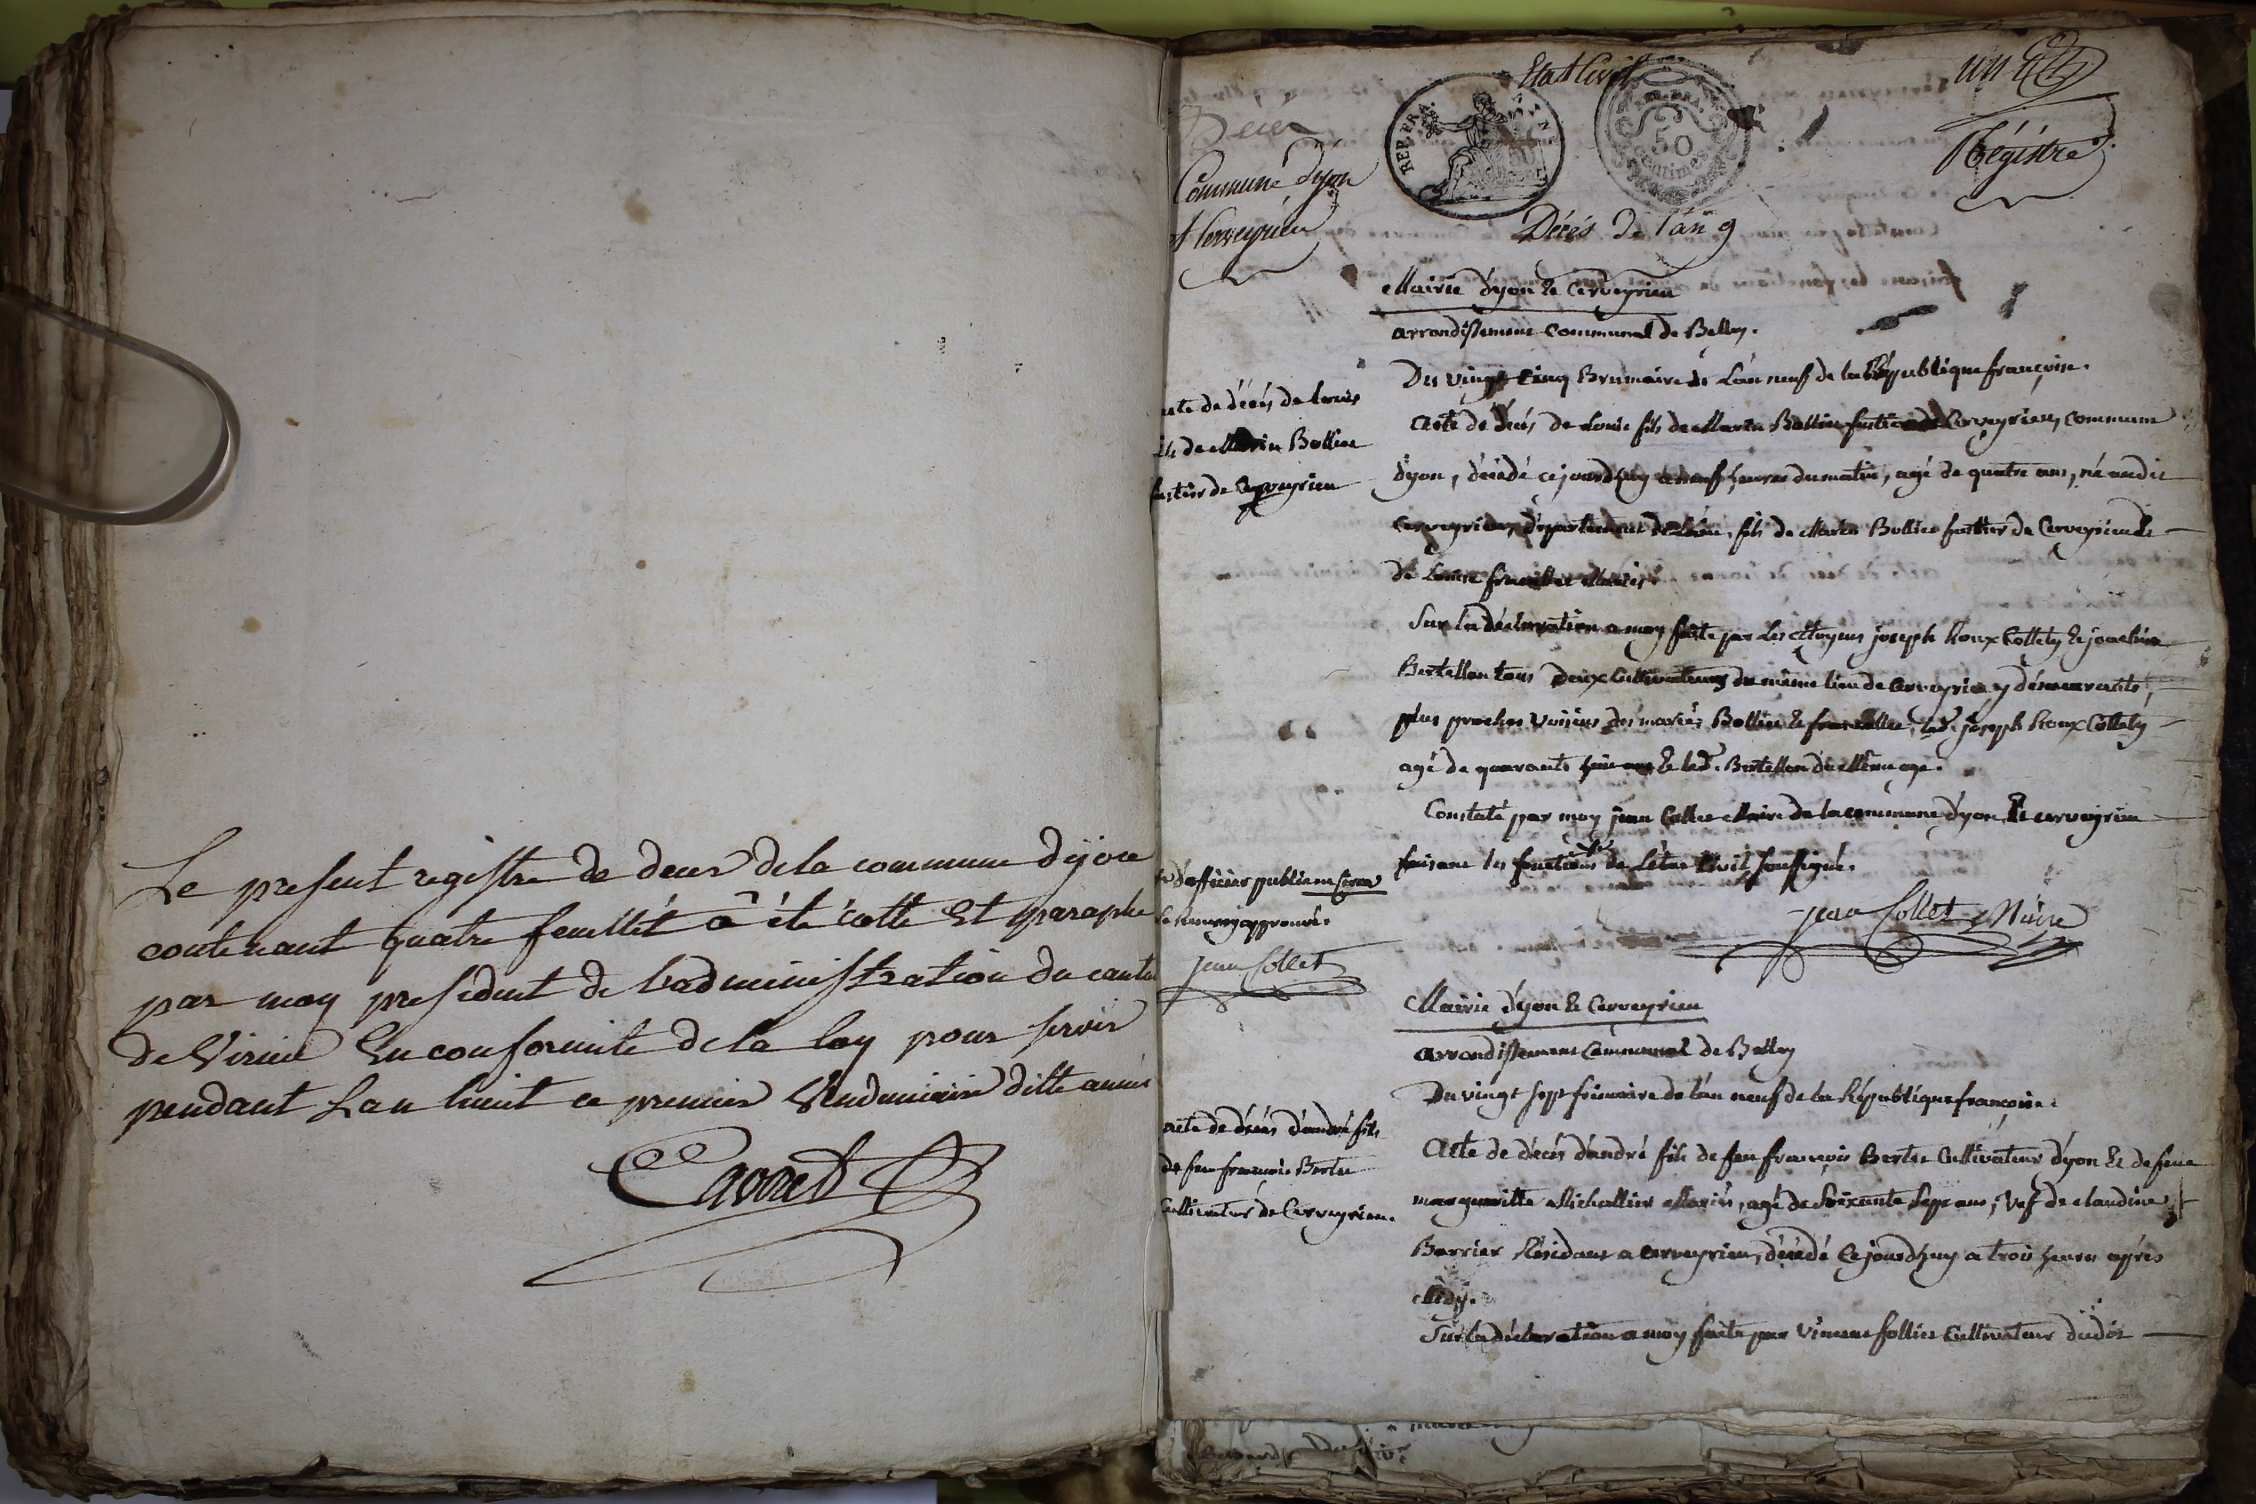 Le present registre de deces de la commune d'yon
contenant quatre feuillet â été cotté Et paraphé
par moy president de l'administration du canton
de Virieu En conformité de la loy pour servir
pendant L'an huit ce premier Vendemiaire ditte année
Etat Civil
un
Régistre
Décès
Commune d'yon
et Cerveyrieu
REP. FRA.
REP. FRA.
50
centimes
Décès de l'an 9
Mairie d'yon & Cerveyrieu
arrondissement Communal de Belley.
Du vingt cinq Brumaire de L'an neuf de la République françoise.
acte de décès de Louis
fils de Marin Bollier
fustier de Cerveyrieu
Acte de décès de Louis fils de Marin Bollier fustier de Cerveyrieu, commune
d'yon, décédé cejourdhuy a neuf heures du matin, agé de quatre ans, né audit
Cerveyrieu, département de L'ain, fils de Marin Bollier fustier de Cerveyrieu &
de Louise mariés.
Sur la déclaration a moy faite par Les citoyens joseph Roux Collet & joachim
Bertellon tous deux Cultivateurs du même lieu de Cerveyrieu y démeurants,
plus proches voisins des mariés Bollier & led. joseph Roux Collet
agé de quarante huit ans & led. Bertellon du Même age.
Constaté par moy jean Collet Maire de la commune d'yon & Cerveyrieu
faisant les fonctions de L'état Civil soussigné.
d'officier public
le Renvoy approuvé.
jean Collet
jean Collet Maire
Mairie d'yon & Cerveyrieu
arrondissement Communal de Belley
Du vingt sept frimaire de l'an neuf de la République françoise.
acte de décès d'andré fils
de feu françois Bertet
Cultivateur de Cerveyrieu.
Acte de décès d'andré fils de feu françois Bertet Cultivateur d'yon & de feue
margueritte Michallier Mariés, agé de soixante sept ans, Vef de claudine
Barrier Résidant a Cerveyrieu, décédé Cejourdhuy a trois heures après
Midy.
Sur la déclaration a moy faite par Vincent follier Cultivateur dudit